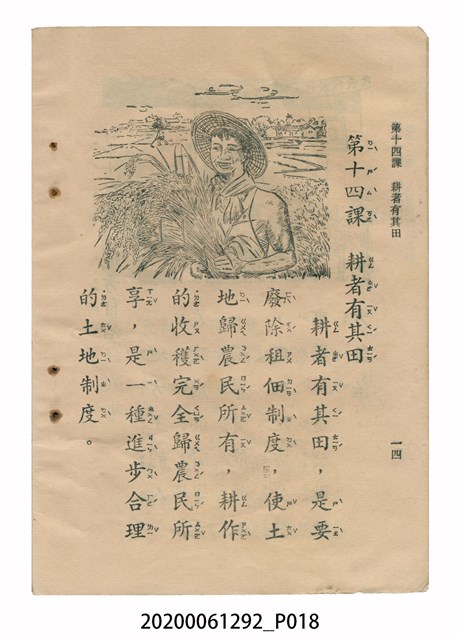 第十四課　耕者有其田
一四
第十四課　耕者有其田
耕者有其田，是要
廢除租佃制度，使土
地歸農民所有，耕作
的收穫完全歸農民所
享，是一種進步合理
的土地制度。
20200061292_P018